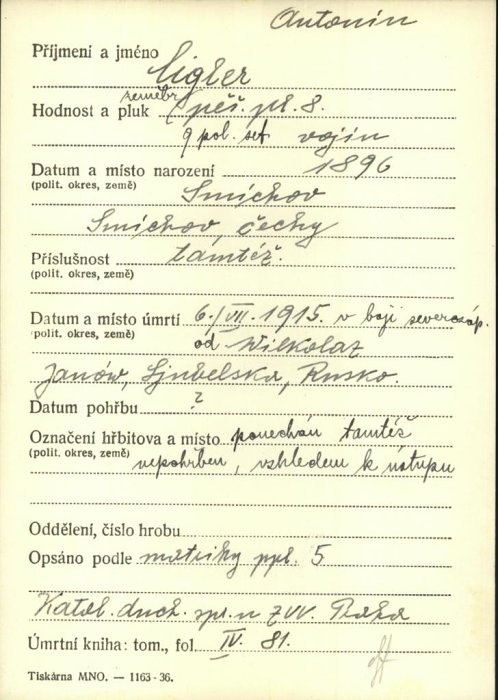 Antonín
Příjmení a jméno Cigler
zeměbr.
Hodnost a pluk pěš. pl. 8.
9 pol. set. vojín
Datum a místo narození 1896
(polit. okres, země) Smíchov
Smíchov, Čechy
Příslušnost tamtéž.
(polit. okres, země)
Datum a místo úmrtí 6./VII. 1915. v boji severozáp.
polit. okres, země) od Wilkolaz
Janów, Ljubelska, Rusko.
Datum pohřbu ?
Označení hřbitova a místo ponechán tamtéž
(polit. okres, země) nepohřben, vzhledem k ústupu
Oddělení, číslo hrobu
Opsáno podle matriky ppl. 5
Katol. duch. spr. u ZVV. Praha
Úmrtní kniha: tom., fol. IV. 81.
Tiskárna MNO. — 1163 - 36.